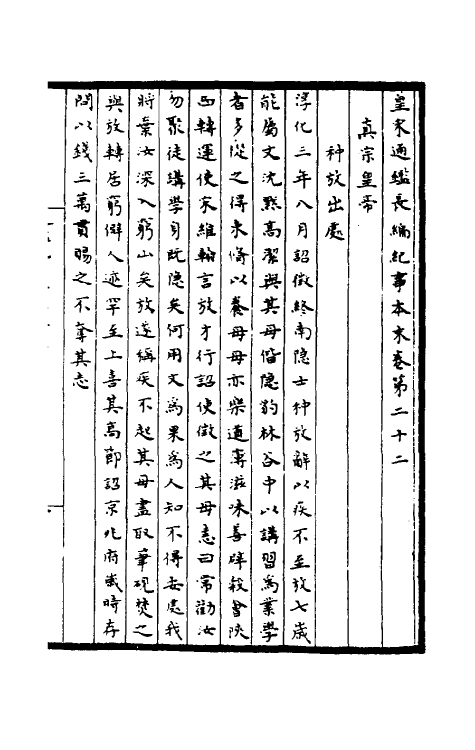 皇宋通鑑長編紀事本末卷第二十二
真宗皇帝
种放出處
淳化三年八月詔徵終南隱士种放辭以疾不至放七歲
能屬文沈默高潔與其母偕隱豹林谷中以講習為業學
者多從之得束脩以養母母亦樂道薄滋味善辟穀會陝
西轉運使宋維翰言放才行詔使徵之其母恚曰常勸汝
勿聚徒講學身既隱矣何用文為果為人知不得安處我
將棄汝深入窮山矣放遂稱疾不起其母盡取筆硯焚之
與放轉居窮僻人迹罕至上喜其高節詔京兆府歲時存
問以錢三萬貫賜之不奪其志